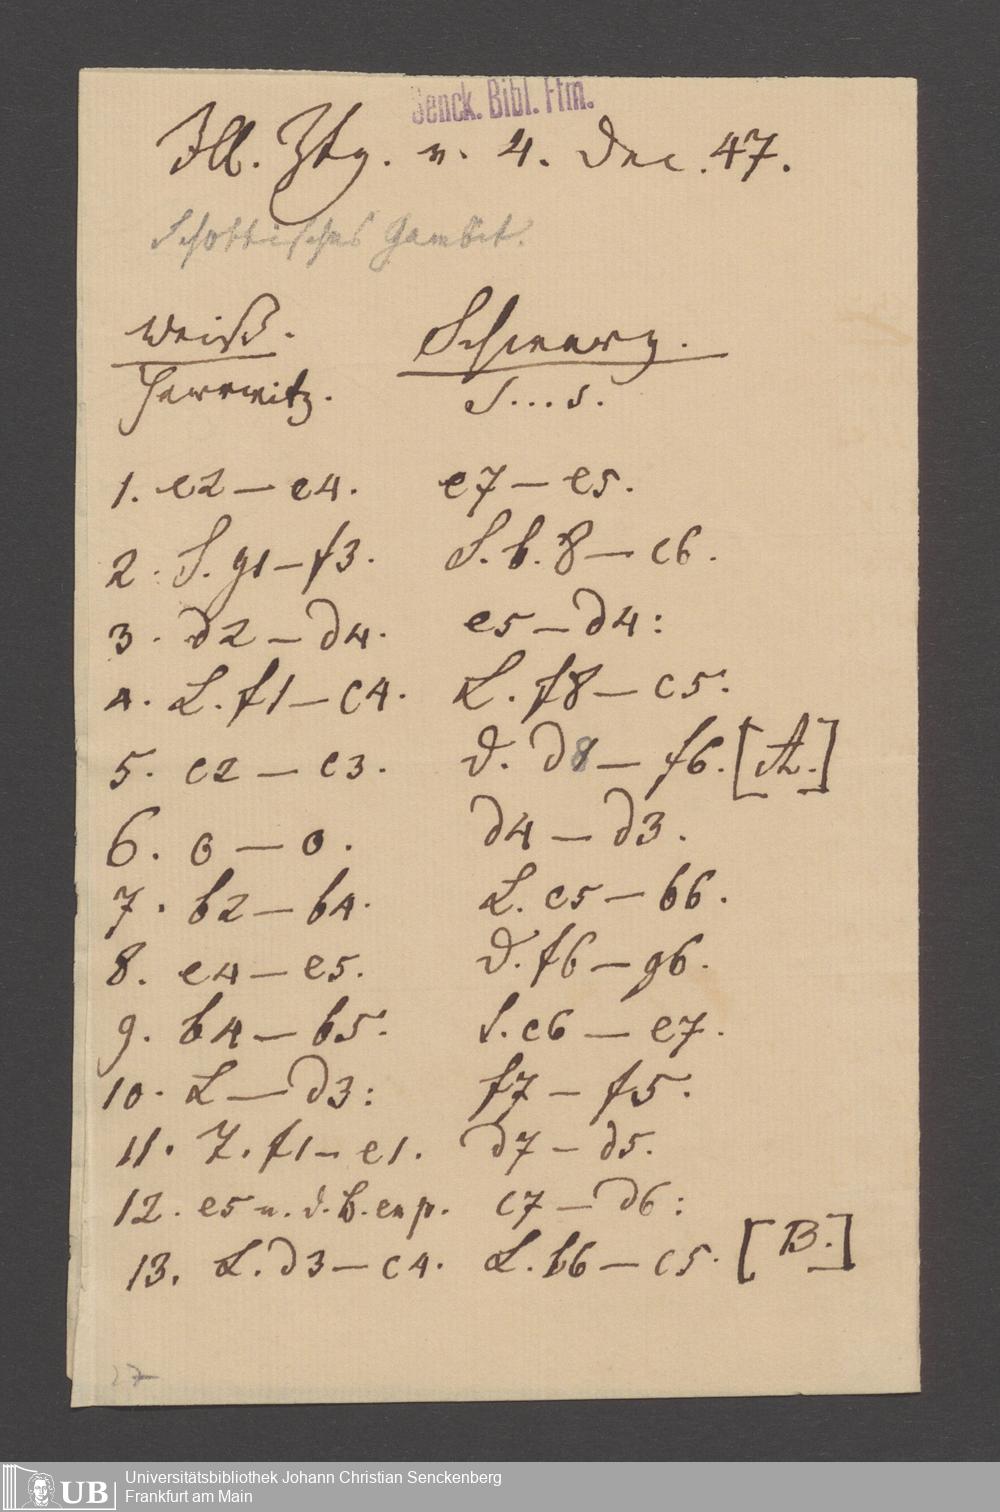 Senck. Bibl. Ffm.
Ill. Ztg. v. 4. Dec. 47.
Schottisches Gambit.
Weiß. Schwarz.
Harrwitz. S...s.
1. e2 — e4. e7 — e5.
2. S. g1 — f3. S. b. 8 — c6.
3. d2 — d4. e5 — d4:
4. L. f1 — c4. L. f8 — c5.
5. c2 — c3. D. d8 — f6. [A.]
6. o — o. d4 — d3.
7. b2 — b4. L. c5 — b6.
8. e4 — e5. D. f6 — g6.
9. b4 — b5. S. c6 — e7.
10. L — d3: f7 — f5.
11. T. f1 — e1. d7 — d5.
12. e5 n. d. B. en p. c7 — d6:
13. L. d3 — c4. L. b6 — c5. [B.]
27
UB
Universitätsbibliothek Johann Christian Senckenberg
Frankfurt am Main